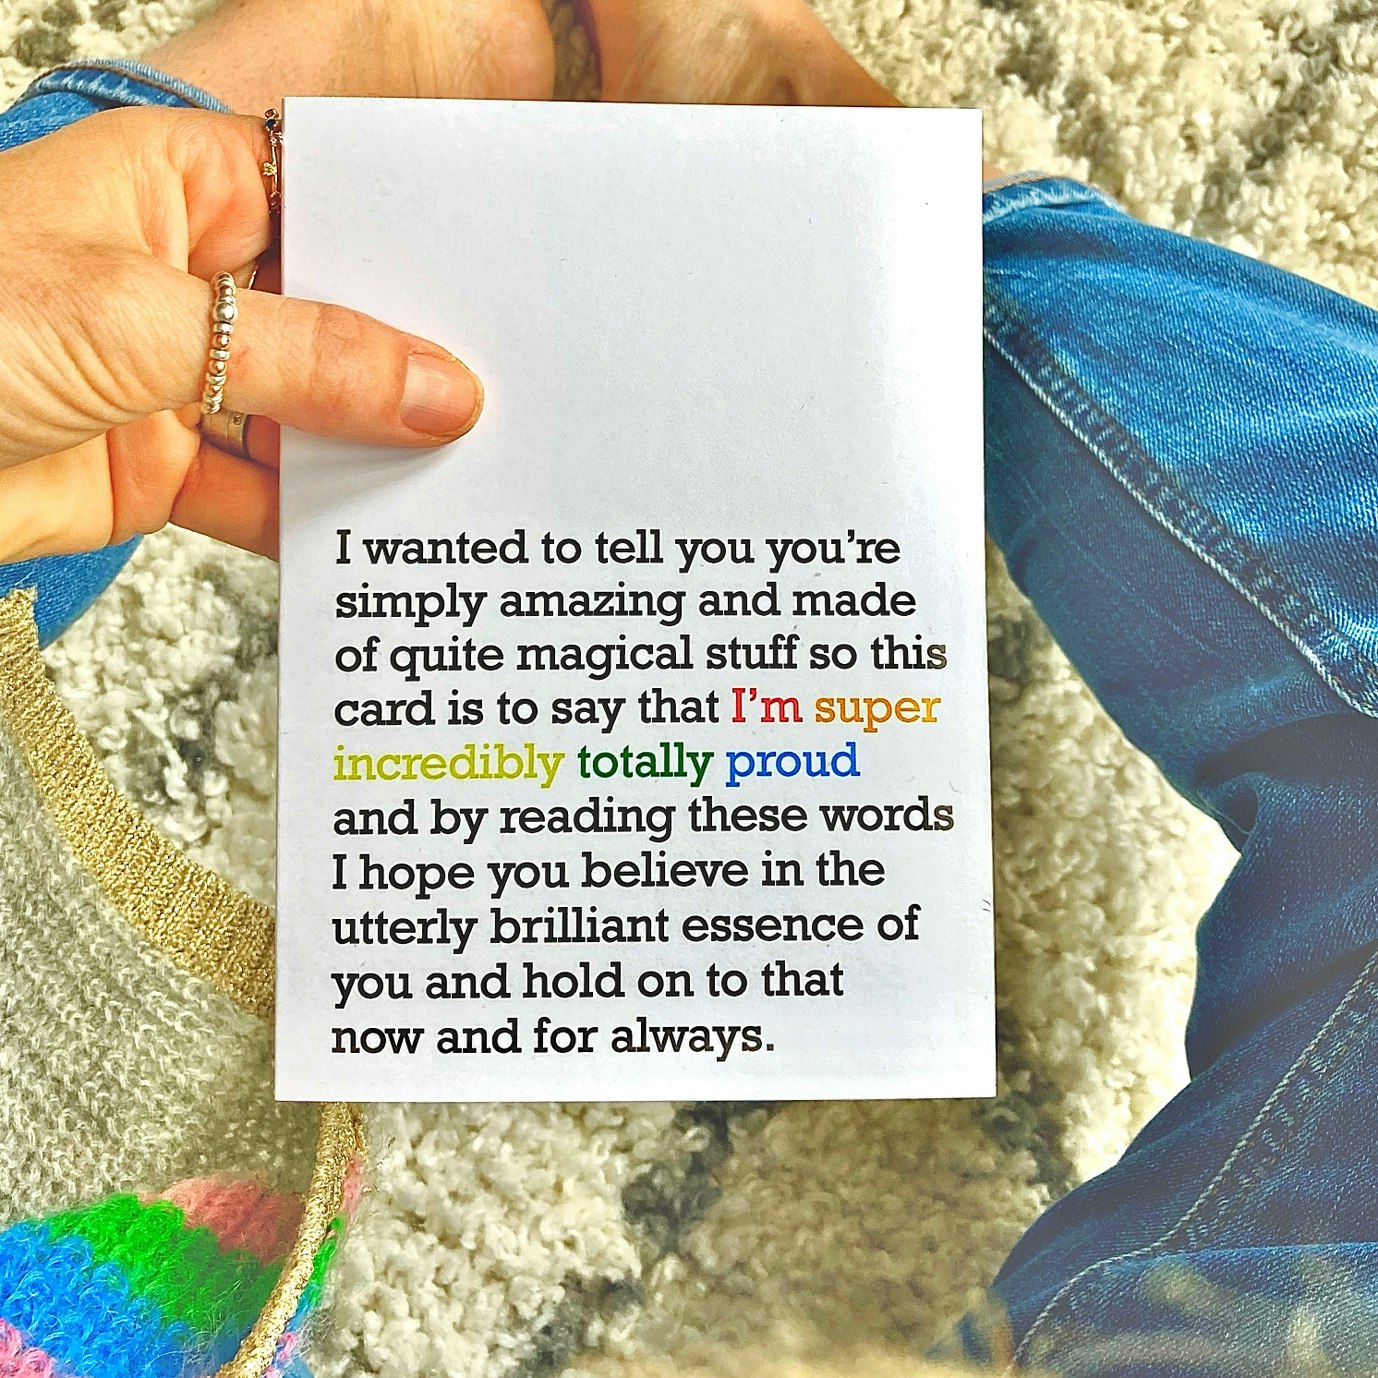 I wanted to tell you you’re
simply amazing and made
of quite magical stuff so this
card is to say that I’m super
incredibly totally proud
and by reading these words
I hope you believe in the
utterly brilliant essence of
you and hold on to that
now and for always.